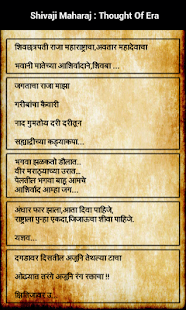 Shivaji Maharaj : Thought Of Era
शिवछत्रपती राजा महाराष्ट्राचा,अवतार महादेवाचा
भवानी मातेच्या आशिर्वादाने,शिवबा ...
जगताचा राजा माझा
गरीबांचा कैवारी
नाद गुमतोय दरी दरीतून
सह्याद्रीच्या कड्याकपा...
भगवा झळकतो डौलात..
वीर मराठ्याच्या उरात...
पेलतील भगवा बाहू आमचे
आशिर्वाद आम्हा जग...
अंधार फार झाला,आता दिवा पाहिजे,
राष्ट्राला पुन्हा एकदा,जिजाऊचा शीवा पाहिजे.
यशव...
दगडावर दिसतील अजूनि तेथल्या टाचा
ओढ्यात तरंगे अजूनि रंग रक्ताचा !!
क्षितिजावर उ...